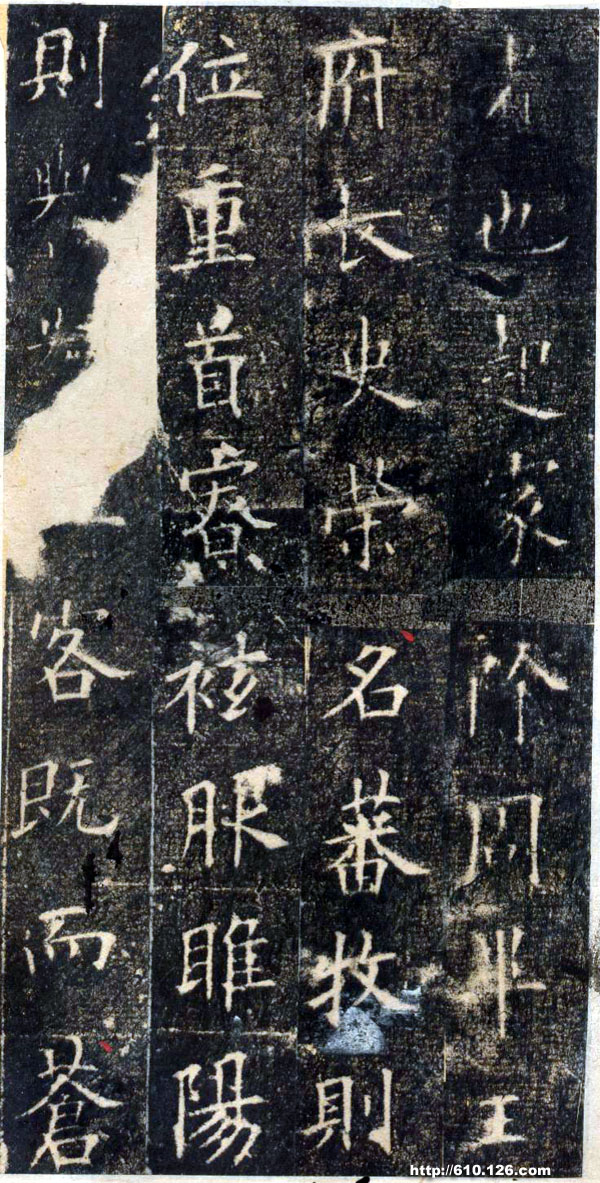 者也起家除周畢王
府長史榮名蕃牧則
位重首寮袨服睢陽
則譽光客既而蒼
http://610.126.com